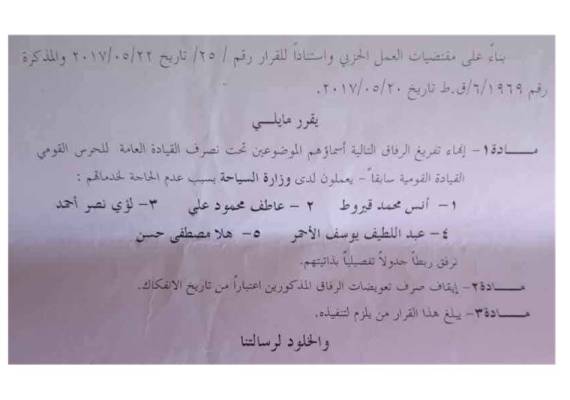 بناءً على مقتضيات العمل الحزبي واستناداً للقرار رقم /٢٥/ تاريخ ٢٠١٧/٠٥/٢٢ والمذكرة
رقم ٦/١٩٦٩/ق.ط تاريخ ٢٠١٧/٠٥/٢٠.
يقرر مايلي
مــادة١- إنهاء تفريغ الرفاق التالية أسماؤهم الموضوعين تحت تصرف القيادة العامة للحرس القومي
القيادة القومية سابقاً- يعملون لدى وزارة السياحة بسبب عدم الحاجة لخدماتهم :
١- أنس محمد قيروط ٢- عاطف محمود علي ٣- لؤي نصر أحمد
٤- عبد اللطيف يوسف الأحمر ٥- هلا مصطفى حسن
نرفق ربطاً جدولاً تفصيلياً بذاتيتهم.
مــادة٢- إيقاف صرف تعويضات الرفاق المذكورين اعتباراً من تاريخ الانفكاك.
مــادة٣- يبلغ هذا القرار من يلزم لتنفيذه.
والخلود لرسالتنا